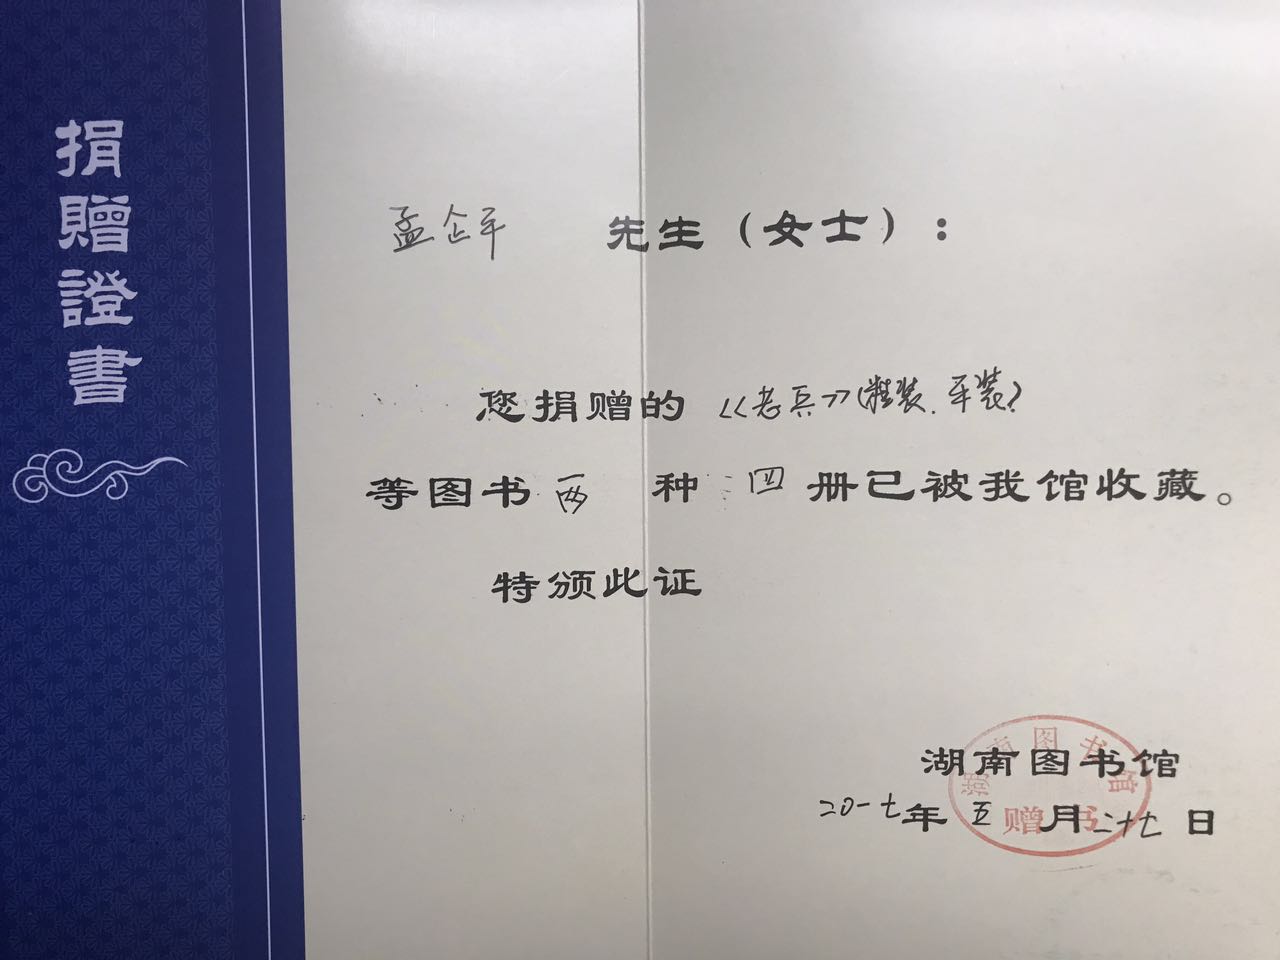 捐贈證書
孟企平 先生（女士）：
您捐赠的《老兵》(精装、平装)
等图书两种四册已被我馆收藏。
特颁此证
湖南图书馆
二〇一七年五月二十七日
湖南图书馆
赠书